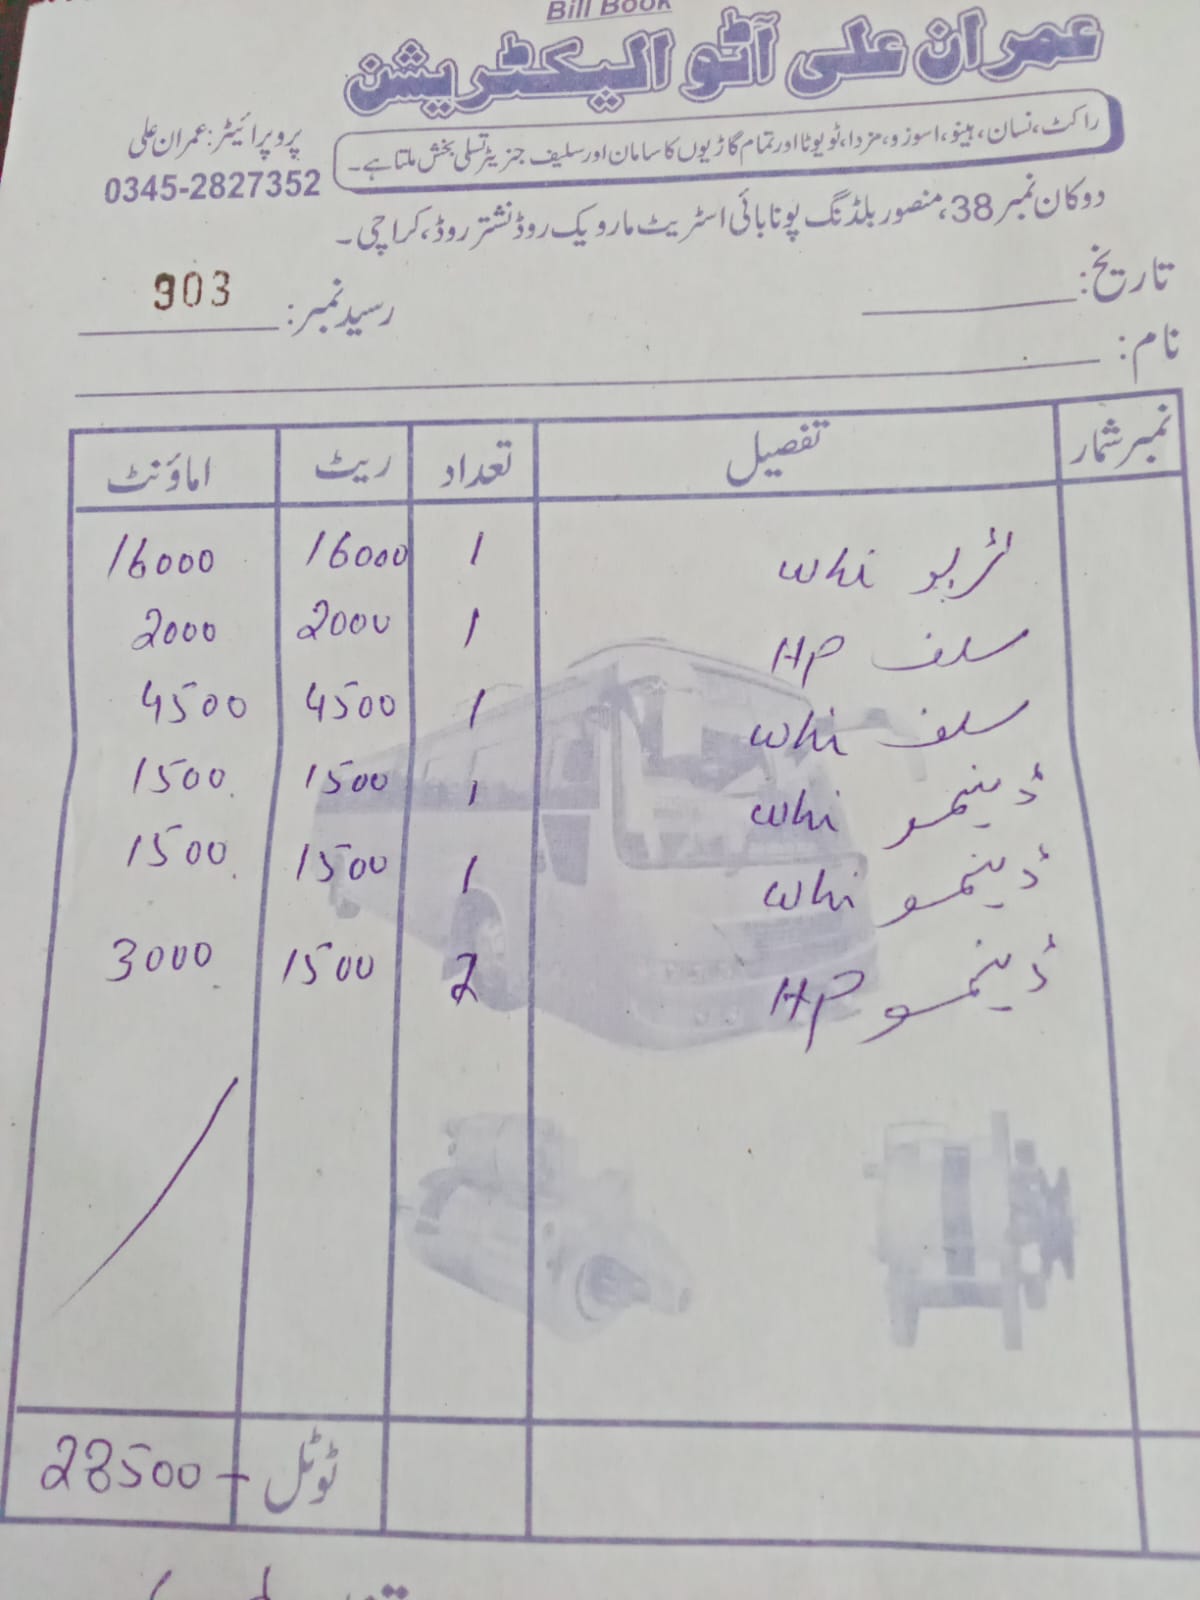 Bill Book
عمران علی آٹو الیکٹریشن
راکٹ، نسان، ہینو، اسوزو، مزدا، ٹویوٹا اور تمام گاڑیوں کا سامان اور سلیف جنریٹر تسلی بخش ملتا ہے۔
پروپرائیٹر: عمران علی
0345-2827352
دوکان نمبر 38، منصور بلڈنگ پونا بائی اسٹریٹ مارویک روڈ نشتر روڈ، کراچی۔
تاریخ:
رسید نمبر: 903
نام:
نمبر شمار تفصیل تعداد ریٹ اماؤنٹ
ٹربو whi 1 16000 16000
سلف HP 1 2000 2000
سلف whi 1 4500 4500
ڈینمو whi 1 1500 1500
ڈینمو whi 1 1500 1500
ڈینمو HP 2 1500 3000
ٹوٹل 28500